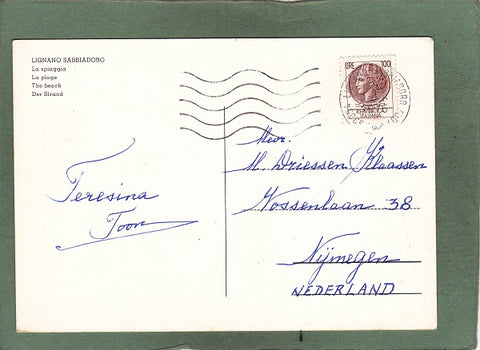 LIGNANO SABBIADORO
La spiaggia
La plage
The beach
Der Strand
LIRE 100
REPUBBLICA
ITALIANA
Teresina
Toon
Mevr.
M. Driessen Klaassen
Vossenlaan 38
Nijmegen
NEDERLAND